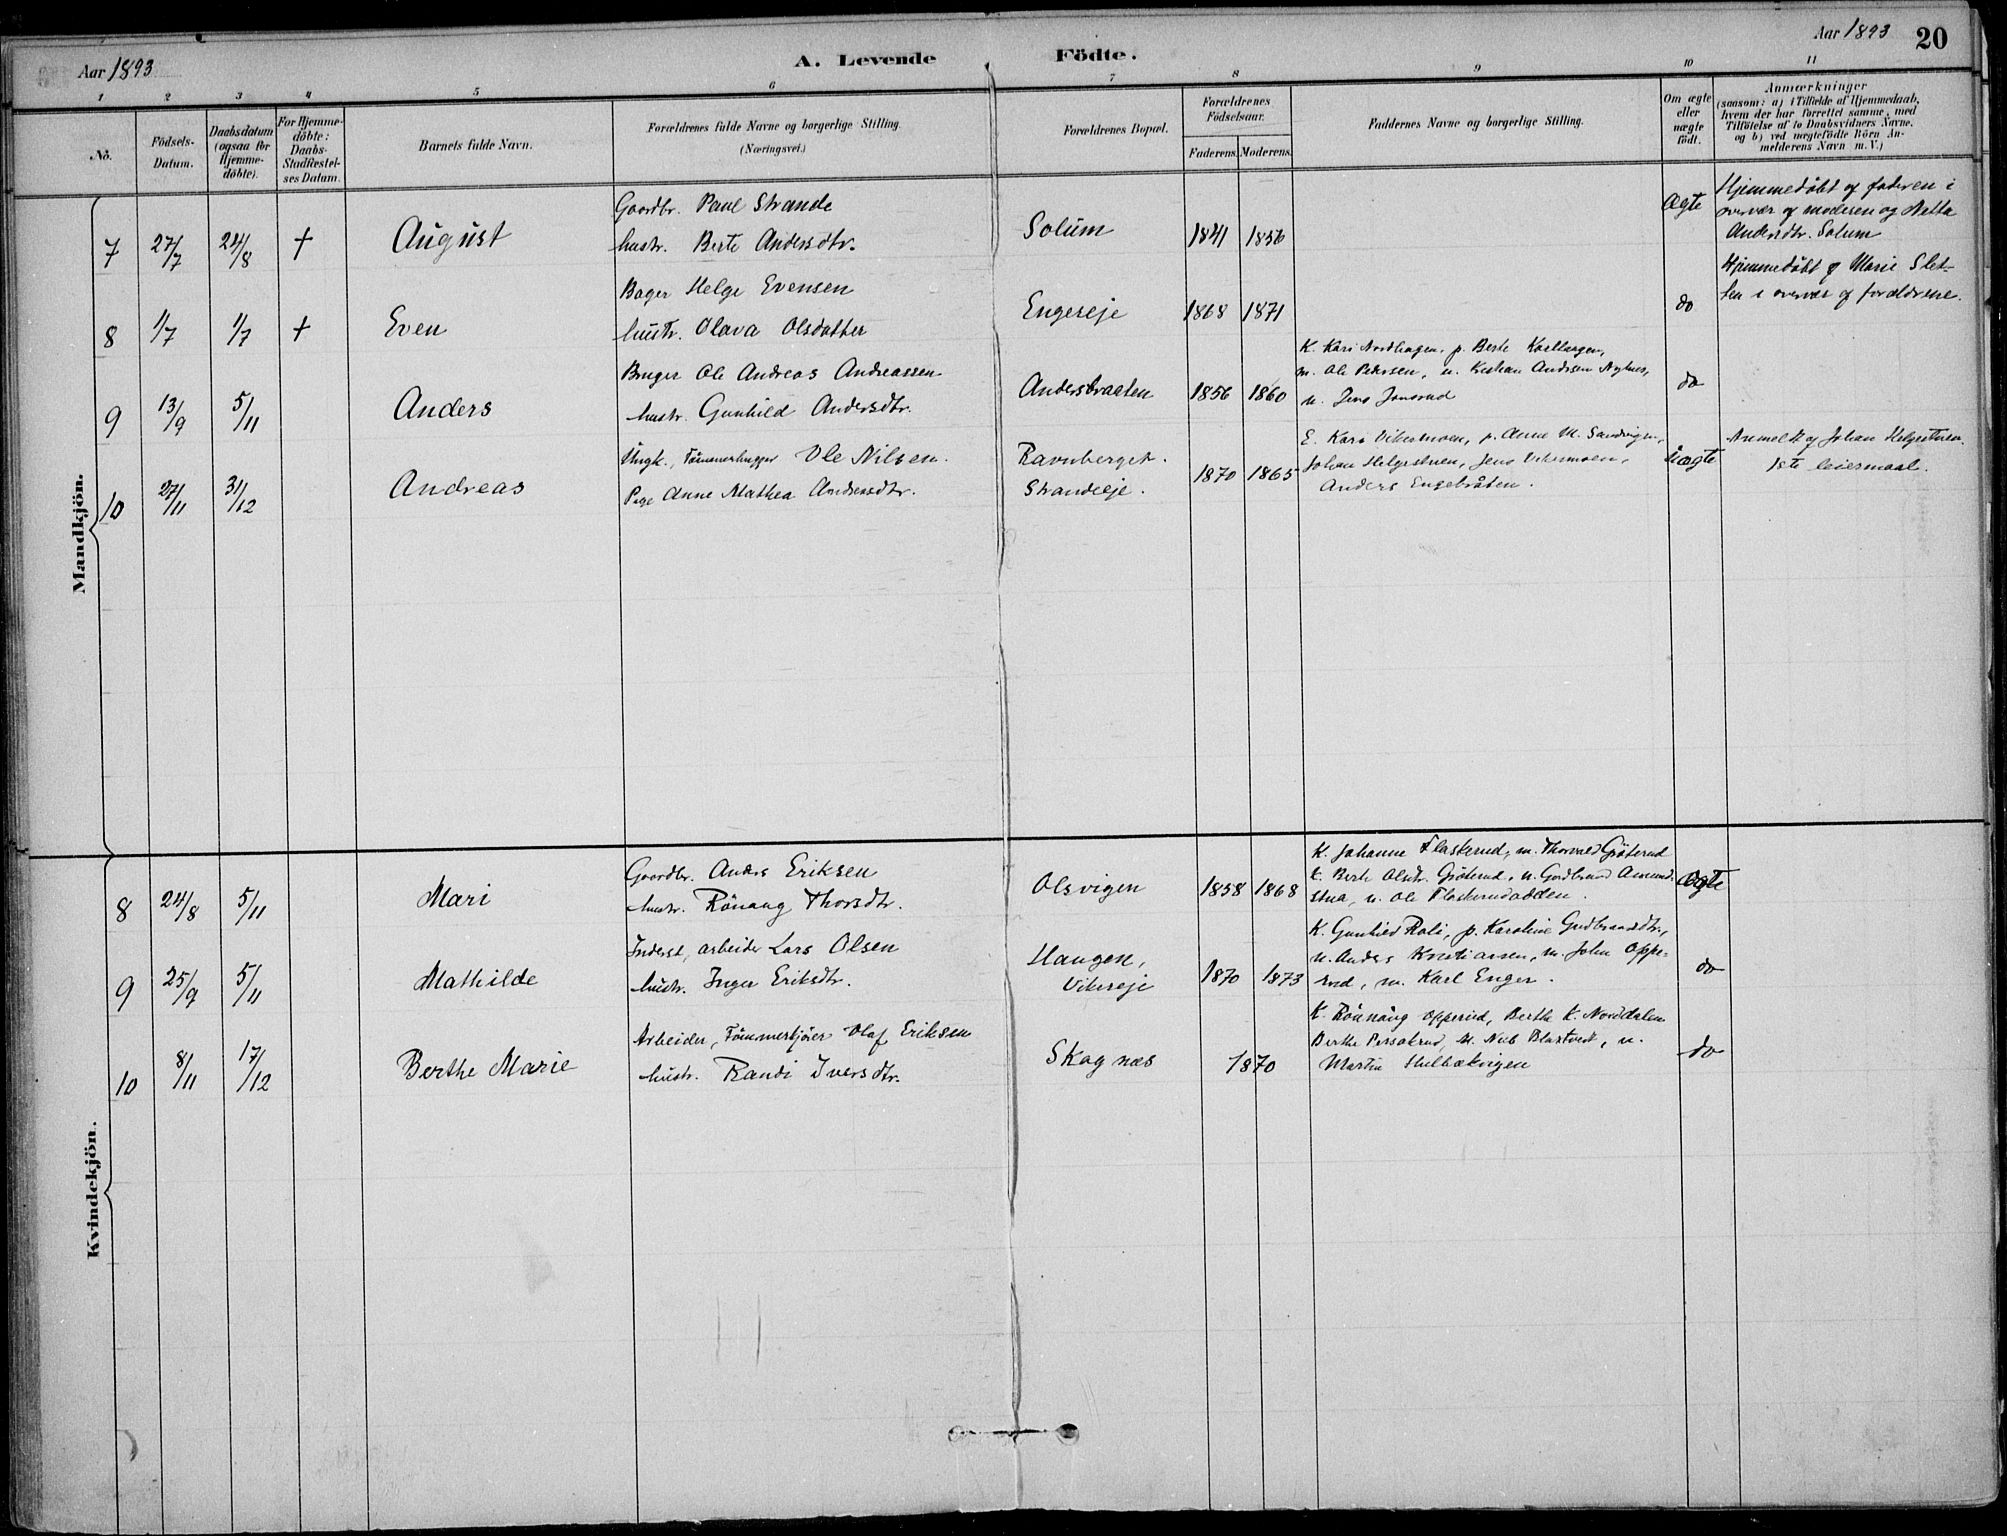 Aar 1893
A. Levende Födte.
Aar 1893 20
1 2 3 4 5 6 7 8 9 10 11
No.
Födsels-
Datum.
Daabsdatum
(ogsaa for
Hjemme-
döbte).
For Hjemme-
döbte:
Daabs-
Stadfæstel-
ses Datum.
Barnets fulde Navn.
Forældrenes fulde Navne og borgerlige Stilling.
(Næringsvei.)
Forældrenes Bopæl.
Forældrenes
Födselsaar.
Faderens. Moderens.
Faddernes Navne og borgerlige Stilling.
Om ægte
eller
uægte
födt.
Anmærkninger
(saasom: a) i Tilfælde af Hjemmedaab,
hvem der har forrettet samme, med
Tilföielse af to Daabsvidners Navne.
og b) ved uægtefödte Börn An-
melderens Navn m. V.)
Mandkjön.
7 27/7 24/8 + August
Gaardbr. Paul Strande
hustr. Berte Andersdtr.
Solum 1841 1856
Ægte
Hjemmedöbt af faderen i
overvær af moderen og Netta
Andersdtr. Solum
8 1/7 1/7 + Even
Bager Helge Evensen
hustr. Olava Olsdatter
Engereje 1868 1871
do
Hjemmedöbt af Marie Slet-
ten i overvær af forældrene.
9 13/9 5/11 Anders
Bruger Ole Andreas Andreassen
hustr. Gunhild Andersdtr.
Andersbraaten 1856 1860
K. Kari Nordhagen, p. Berte
m. Ole Pedersen, u. Andersen
u. Jens Jonsrud
do
10 27/11 31/12 Andreas
Ungk., Tömmerhugger Ole Nilsen.
Pige Anne Mathea Andersdtr.
Ravnberget.
Strandeje.
1870 1865
E. Kari Vikermoen, p. Anne M.
Johan Helgestuen, Jens Vikermoen,
Anders Engebråten.
Uægte
Anmeldt af Johan Helgestuen.
1ste leiermaal.
Kvindekjön.
8 24/8 5/11 Mari
Gaardbr. Anders Eriksen
hustr. Rönaug Thorsdtr.
Olsvigen 1858 1868
K. Johanne Flaskerud, m. Thorvald Gröterud
K. Berte Olsdtr. Gröterud, u. Gudbrand Amund-
stua, u. Ole Flaskerudødden.
Ægte
9 25/9 5/11 Mathilde
Inderst, arbeider Lars Olsen
hustr. Inger Eriksdtr.
Haugen,
Vikereje
1870 1873
K. Gunhild Roli, p. Karoline Gudbrandsdtr.,
u. Anders Kristiansen, m. John Oppe-
rud, m. Karl Enger.
do
10 8/11 17/12 Berthe Marie
Arbeider, Tömmerkjörer Olaf Eriksen
hustr. Randi Iversdtr.
Skagnæs 1870
K. Rönnaug Opperud, Berthe K. Norddalen
Berthe Persakrud, M. Nils u.
Martin Stulbækvigen
do